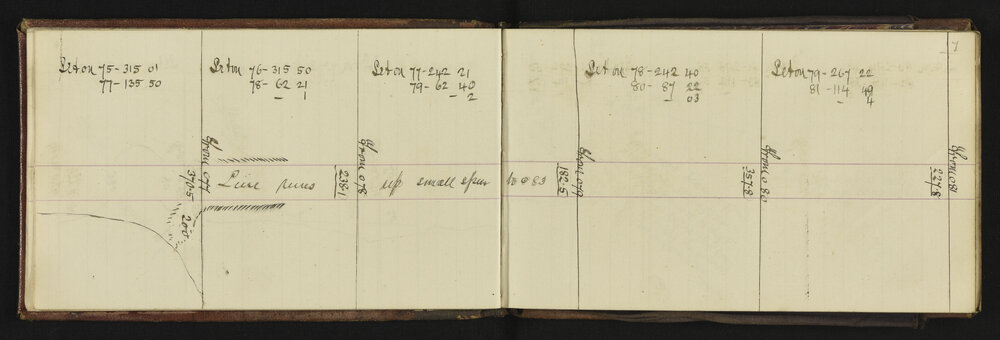 7
Set on 75-315 01
77-135 50
Set on 76-315 50
78-62 21
- 1
Set on 77-242 21
79-62 40
- 2
Set on 78-242 40
80-87 22
- 03
Set on 79-267 22
81-114 49
- 4
From 077
370.5
Line runs up small spur to 083
238.1
From 078
182.5
From 079
357.8
From 080
227.8
From 081
200